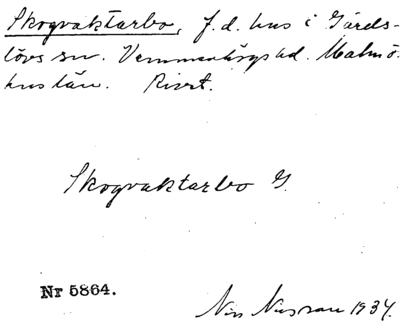 Skogvaktarbo, f.d. hus i Gärds-
lövs sn. Vemmenhögs hd. Malmö-
hus län. Rivet.
Skogvaktarbo G.
Nr 5864.
Nils Nilsson 1934.